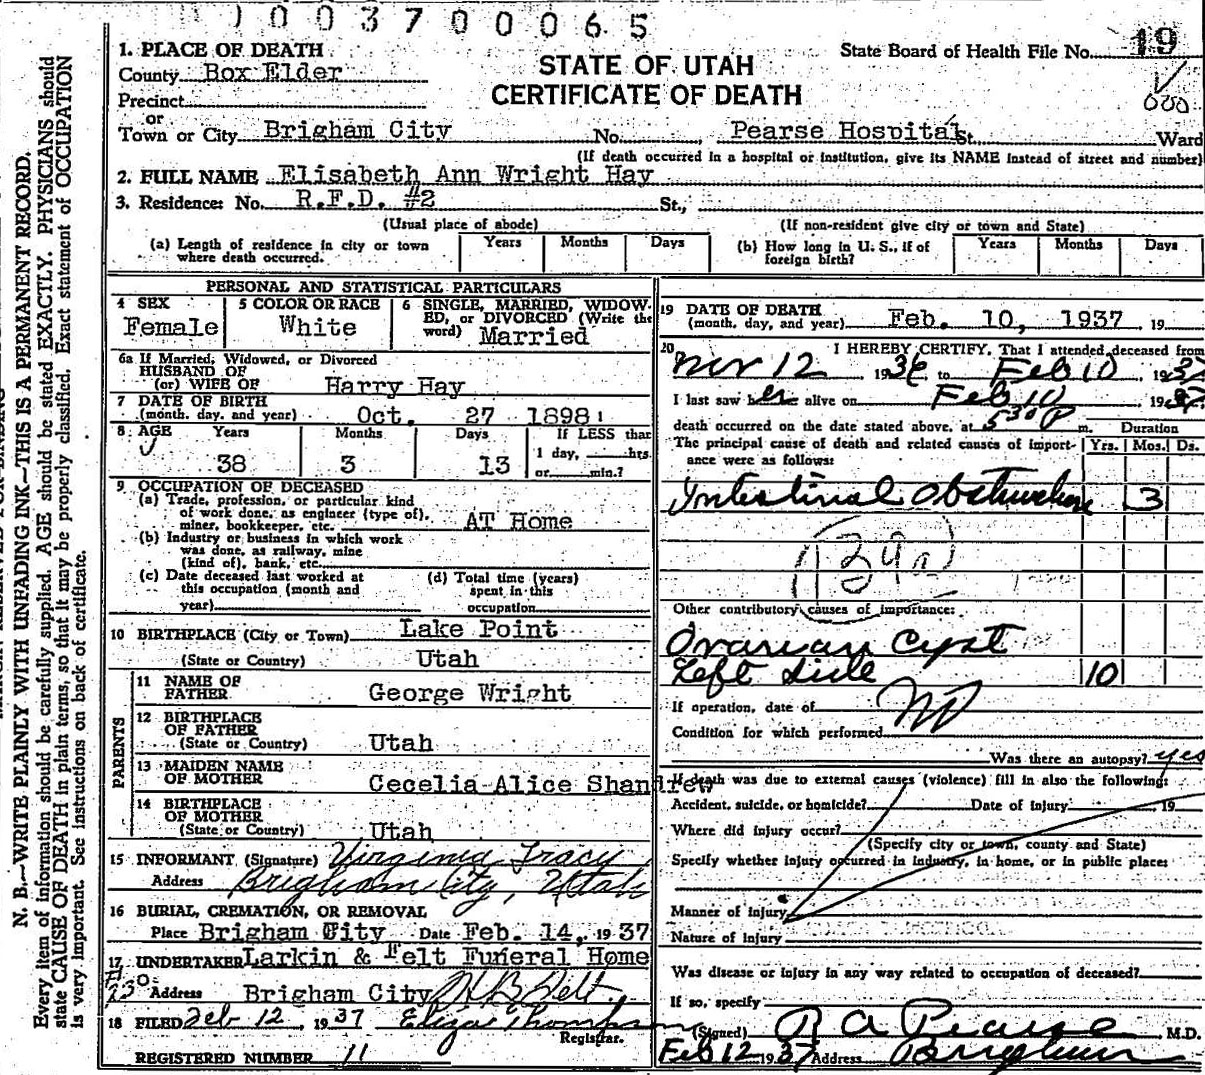 1003700065
1. PLACE OF DEATH
County Box Elder
Precinct
or
Town or City Brigham City No. Pearse Hospital St. Ward
STATE OF UTAH
CERTIFICATE OF DEATH
State Board of Health File No. 19
(If death occurred in a hospital or institution, give its NAME instead of street and number)
2. FULL NAME Elisabeth Ann Wright Hay
3. Residence: No. R.F.D. #2 St.,
(Usual place of abode) (If non-resident give city or town and State)
(a) Length of residence in city or town where death occurred. Years Months Days (b) How long in U. S., if of foreign birth? Years Months Days
PERSONAL AND STATISTICAL PARTICULARS
4 SEX Female
5 COLOR OR RACE White
6 SINGLE, MARRIED, WIDOWED, or DIVORCED (Write the word) Married
6a If Married, Widowed, or Divorced
HUSBAND OF
(or) WIFE OF Harry Hay
7 DATE OF BIRTH
(month, day, and year) Oct. 27 1898
8 AGE Years Months Days If LESS than
38 3 13 1 day, hrs.
or min.?
9 OCCUPATION OF DECEASED
(a) Trade, profession, or particular kind
of work done, as engineer (type of),
miner, bookkeeper, etc. AT Home
(b) Industry or business in which work
was done, as railway, mine
(kind of), bank, etc.
(c) Date deceased last worked at
this occupation (month and
year)
(d) Total time (years)
spent in this
occupation
10 BIRTHPLACE (City or Town) Lake Point
(State or Country) Utah
PARENTS
11 NAME OF
FATHER George Wright
12 BIRTHPLACE
OF FATHER
(State or Country) Utah
13 MAIDEN NAME
OF MOTHER Cecelia Alice Shandrew
14 BIRTHPLACE
OF MOTHER
(State or Country) Utah
15 INFORMANT (Signature) Virginia Tracy
Address Brigham City, Utah
16 BURIAL, CREMATION, OR REMOVAL
Place Brigham City Date Feb. 14, 1937
17 UNDERTAKER Larkin & Felt Funeral Home
Address Brigham City H B Felt
18 FILED Feb 12, 1937 Eliza Thompson
Registrar.
REGISTERED NUMBER 11
19 DATE OF DEATH
(month, day, and year) Feb. 10, 1937 19
20 I HEREBY CERTIFY, That I attended deceased from
Nov 12 1936 to Feb 10, 1937
I last saw her alive on Feb 10 1937
death occurred on the date stated above, at 5 30 P m. Duration
The principal cause of death and related causes of importance were as follows: Yrs. Mos. Ds.
Intestinal Obstruction 3
Other contributory causes of importance:
Ovarian Cyst
Left Side 10
If operation, date of No
Condition for which performed
Was there an autopsy? yes
If death was due to external causes (violence) fill in also the following:
Accident, suicide, or homicide? Date of injury 19
Where did injury occur?
(Specify city or town, county and State)
Specify whether injury occurred in industry, in home, or in public place:
Manner of injury
Nature of injury
Was disease or injury in any way related to occupation of deceased?
If so, specify
(Signed) R A Pearse M.D.
Feb 12 1937 Address Brigham
N. B.—WRITE PLAINLY WITH UNFADING INK—THIS IS A PERMANENT RECORD.
Every item of information should be carefully supplied. AGE should be stated EXACTLY. PHYSICIANS should
state CAUSE OF DEATH in plain terms, so that it may be properly classified. Exact statement of OCCUPATION
is very important. See instructions on back of certificate.